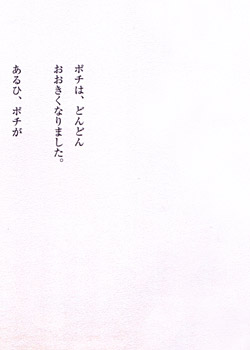 ポチは、どんどん
おおきくなりました。
あるひ、ポチが